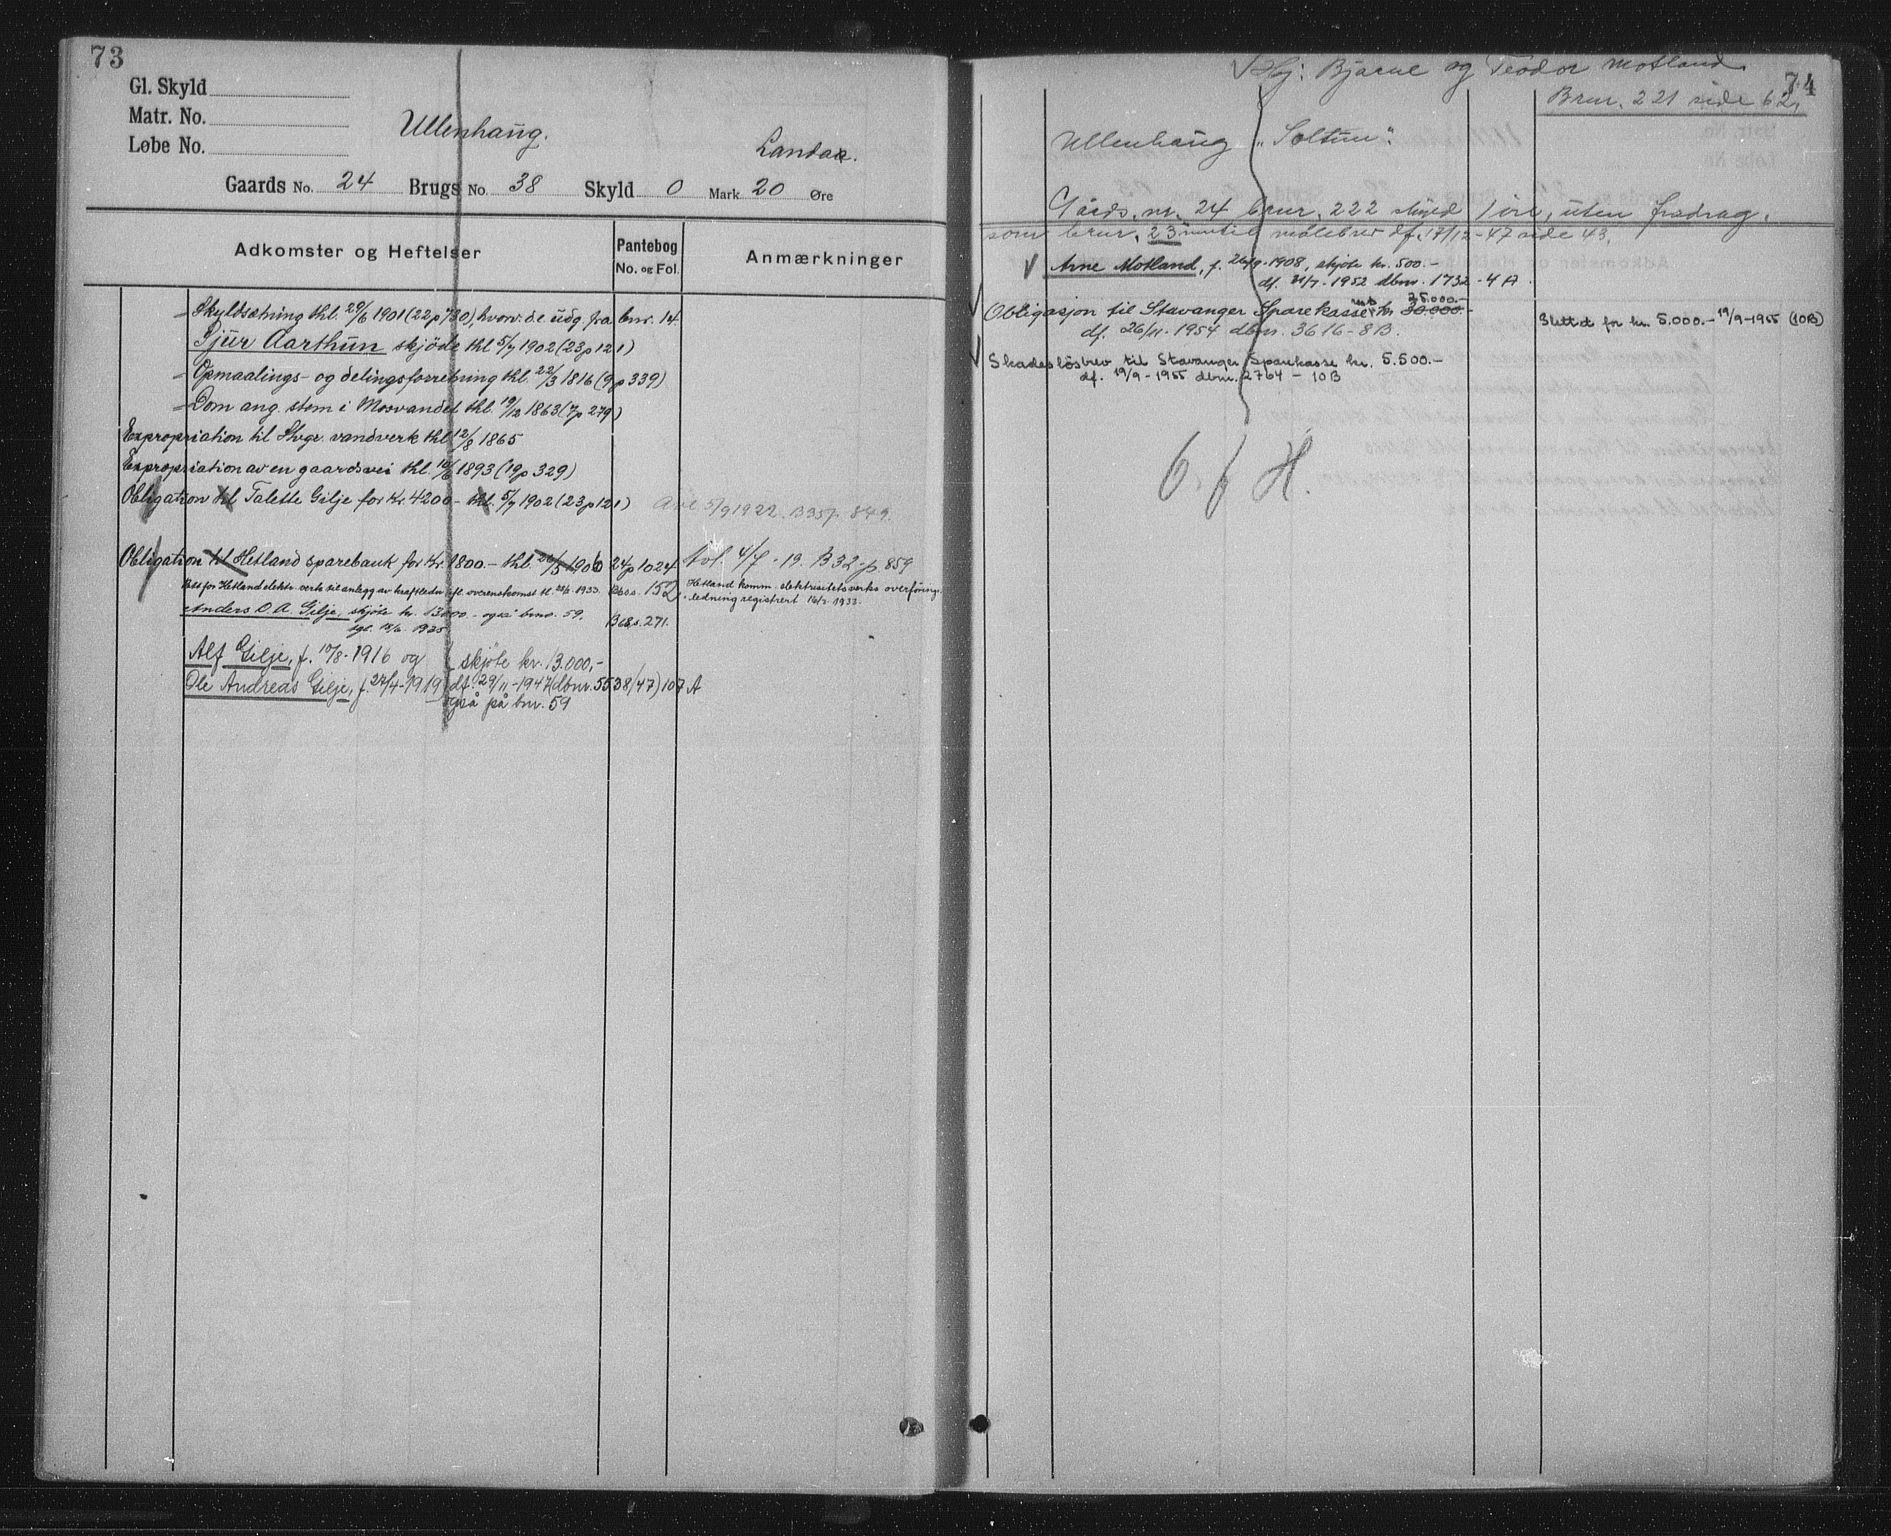 73
Gl. Skyld
Matr. No.
Løbe No.
Ullenhaug.
Landaa.
Gaards No. 24 Brugs No. 38 Skyld 0 Mark 20 Øre
Adkomster og Heftelser
Pantebog
No. og Fol.
Anmærkninger
Skyldsætning thl. 29/6 1901 (22 p 730), hvorv. d.e. udg. fra bnr. 14
Sjur Aarthun skjøde thl 5/7 1902 (23 p 121)
Opmaalings- og delingsforretning thl. 22/3 1816 (9 p 339)
Dom ang. stem i Mosvandet thl. 19/12 1863 (7 p 279)
Expropriation til Stvgr. vandverk thl 12/8 1865
Expropriation av en gaardsvei thl. 10/6 1893 (19 p 329)
Obligation til Talette Gilje for Kr. 4200 - thl. 5/7 1902 (23 p 121) Avl 5/9 1922. B35 p. 849.
Obligation til Hetland sparebank for Kr. 1800.- thl. 26/5 1906 24 p 1024 Avl. 4/7 - 19. B32 - p. 859
Ret for Hetland elektr. verk til anlegg av kraftledn. ifl. overenskomst tl. 1933. B60 s. 152 Hetland komm. elektrisitetsverks overføring-
ledning registrert 16/2 1933.
Anders O. A. Gilje, skjøte kr. 13000.- også bnr. 59. B68 s. 271.
tgl. 18/6 1935
Alf Gilje, f. 10/8-1916 og skjøte kr. 13.000,-
Ole Andreas Gilje, f. 27/4-1919 df. 29/11-1947 (dbnr. 5538/47) 107 A
også på bnr. 59
Hj: Bjarne og Teodor Motland
74
Brnr. 221 side 62.
Ullenhaug "Soltun".
Gårds. nr. 24 brnr. 222 skyld 1 øre, uten fradrag.
som brnr. 23 målebrev df. 17/12-47 side 43.
Arne Motland, f. 26/9-1908, skjøte kr. 500.-
df. 21/7-1952 dbnr. 1732 - 4A.
Obligasjon til Stavanger Sparekasse kr. 30.000.- 25.000.-
df. 26/11-1954 dbnr. 3616-8B.
Slettet for kr. 5.000.- 19/9-1955 (10B)
Skadesløsbrev til Stavanger Sparekasse kr. 5.500.-
df. 19/9-1955 dbnr. 2764 - 10B